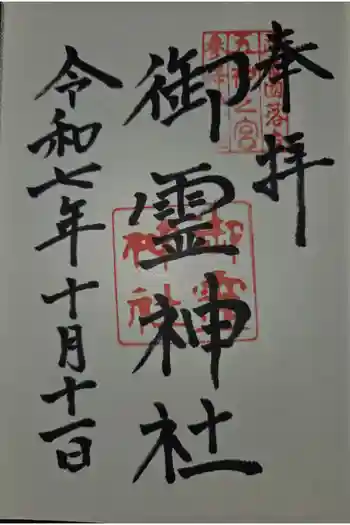 奉拝
御霊神社
令和七年十月十一日
御霊
神社